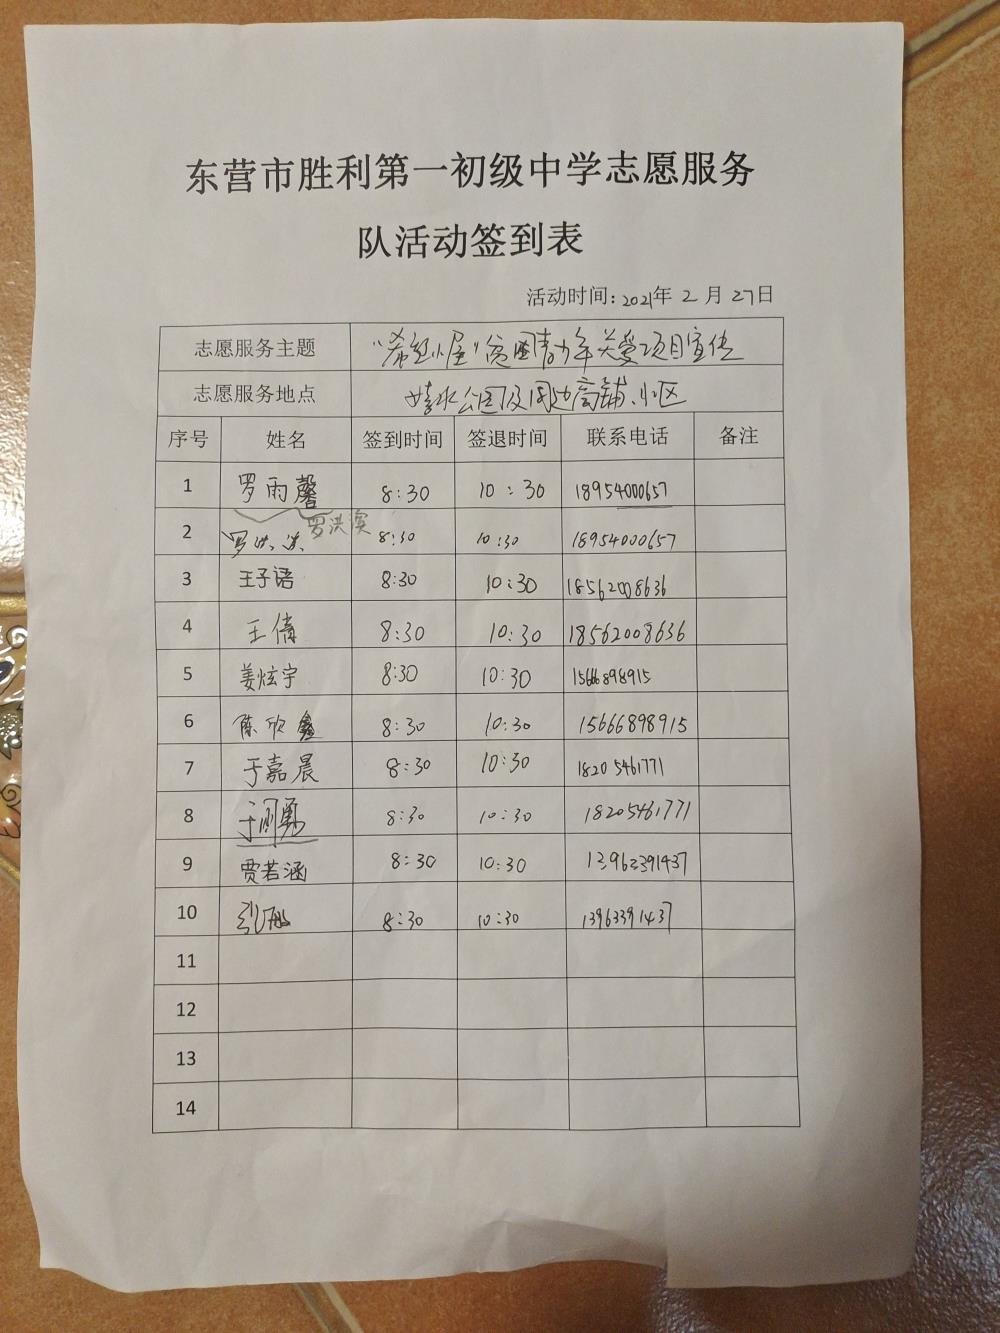 东营市胜利第一初级中学志愿服务
队活动签到表
活动时间:2021年 2 月 27日
志愿服务主题 "希望小屋"贫困青少年关爱项目宣传
志愿服务地点 清水公园及周边商铺、小区
序号 姓名 签到时间 签退时间 联系电话 备注
1 罗雨馨 8:30 10:30 18954000657
罗洪滨
2 罗洪 8:30 10:30 18954000657
3 王子语 8:30 10:30 18562008636
4 王倩 8:30 10:30 18562008636
5 姜炫宇 8:30 10:30 15666898915
6 陈欣鑫 8:30 10:30 15666898915
7 于嘉晨 8:30 10:30 18205461771
8 于 8:30 10:30 18205461771
9 贾若涵 8:30 10:30 13963391437
10 8:30 10:30 13963391437
11
12
13
14